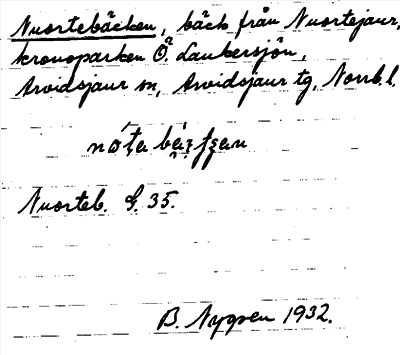 Nuortebäcken, bäck från Nuortejaur,
kronoparken Ö. Laubersjön,
Arvidsjaur sn, Arvidsjaur tg, Norrb. l.
Nuorteb. G. 35.
B. Nygren 1932.